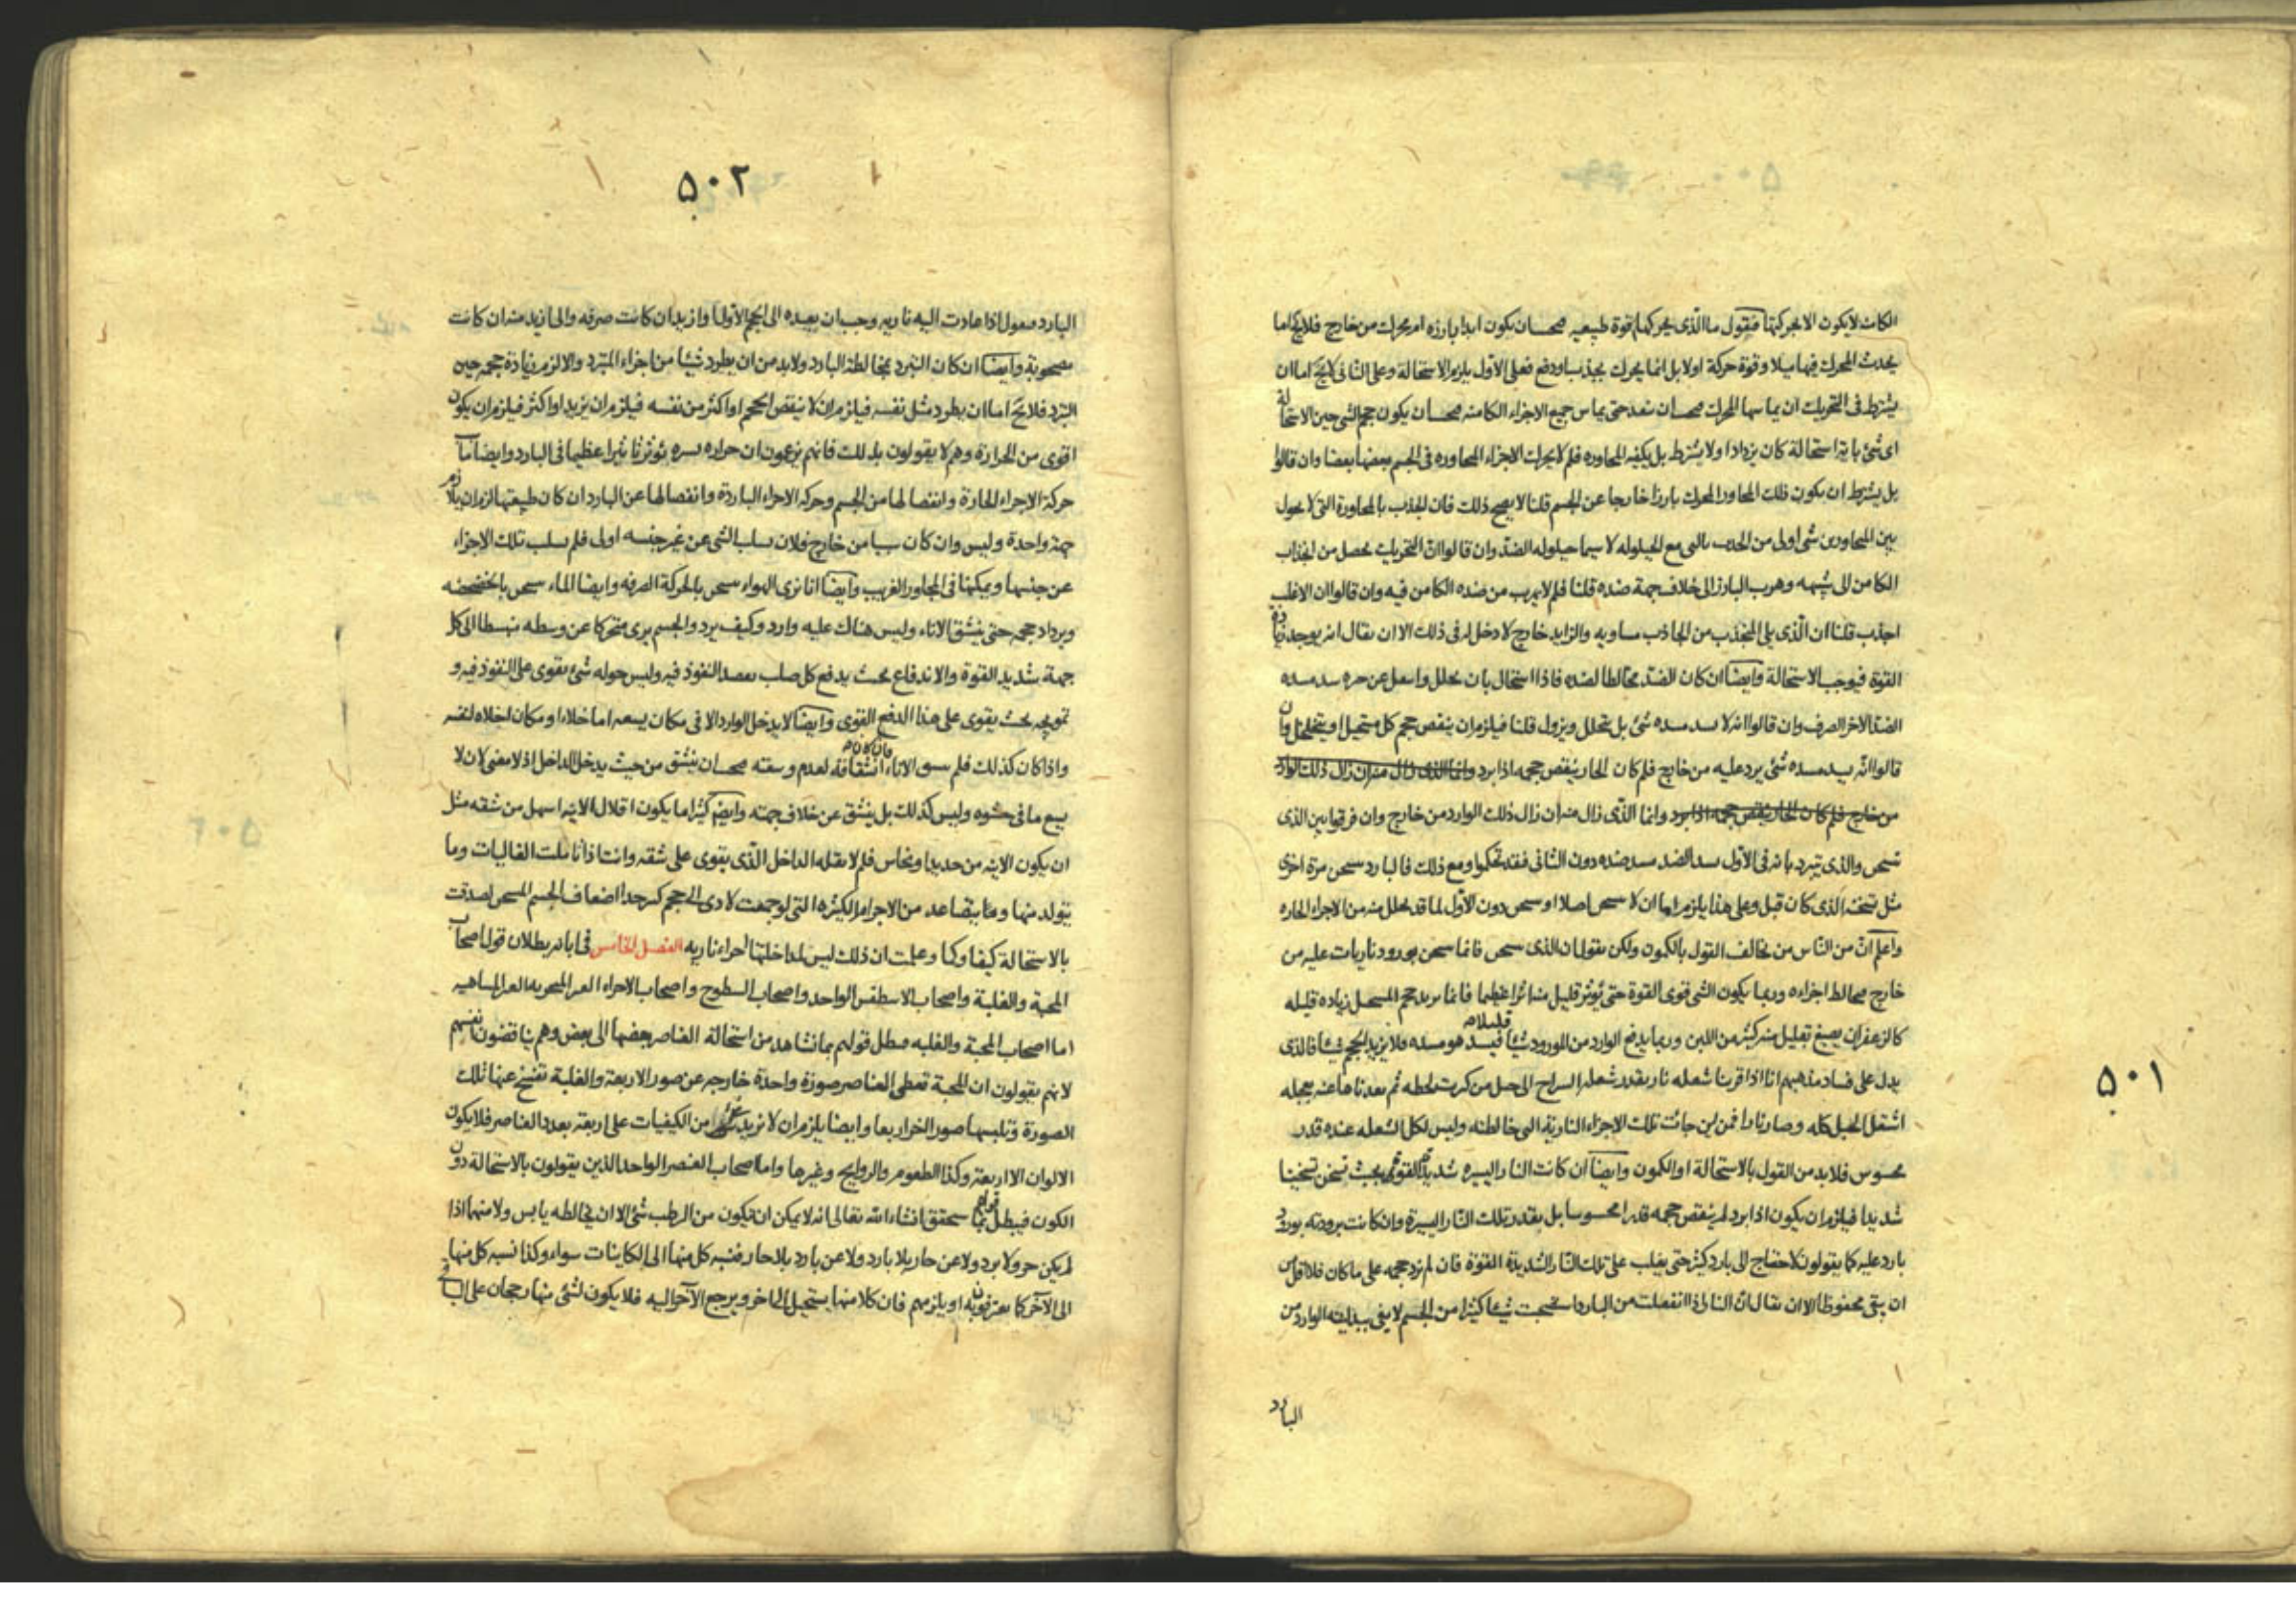 ٥٠١
الكامن لايكون الا بحركتها فنقول ما الذى يحركها قوة طبيعيه فيجب ان يكون ابدا بارزه ام محرك من خارج فلايخ اما
يحدث المحرك فيها ميلا وقوة حركة اولا بل انما يحرك بجذب او دفع فعلى الاول يلزم الاستحالة وعلى الثانى لايخ اما ان
يشترط فى التحريك ان يماسها المحرك فيجب ان ينفذ حتى يماس جميع الاجزاء الكامنه فيجب ان يكون حجم الشى حين الاستحالة
اى شئ باية استحالة كان يزداد او لا يشترط بل يكفيه المجاوره فلم لا يحرك الاجزاء المجاوره فى الجسم بعضها بعضا وان قالوا
بل يشترط ان يكون ذلك المجاور المحرك بارزا خارجا عن الجسم قلنا لا يصح ذلك فان الجذب بالمجاورة التى لا يحول
بين المجاورين شى اولى من الجذب التى مع الحيلوله لا سيما حيلوله الضد وان قالوا ان التحريك يحصل من انجذاب
الكامن الى شبهه وهرب البارز الى خلاف جهة ضده قلنا فلم لا يهرب من ضده الكامن فيه وان قالوا ان الاغلب
اجذب قلنا ان الذى يلى المنجذب من الجاذب مساويه والزايد خارج لا دخل له فى ذلك الا ان يقال انه يوجد زيادة
القوة فيوجب الاستحالة وايضا ان كان الضد مخالطا لضده فاذا استحال بان يحلل وانسل عن حره سد مسده
الضد الاخر الصرف وان قالوا انه لا سد مسده شئ بل يتحلل ويزول قلنا فيلزم ان ينقص حجم كل مستحيل او يتخلخل وان
قالوا انه يسد مسده شئ يرد عليه من خارج فلم كان الحار ينقص حجمه اذا برد وانما الذى زال منه ان زال ذلك الوارد
من خارج فلم كان الحار ينقص حجمه اذا برد وانما الذى زال منه ان زال ذلك الوارد من خارج وان فرقوا بين الذى
تسخن والذى تبرد بانه فى الاول سد الضد مسد ضده دون الثانى فقد تحكموا ومع ذلك فالبارد سخن مرة اخرى
مثل تسخنه الذى كان قبل وعلى هذا يلزم اما ان لا سخن اصلا او سخن دون الاول لما قد تحلل منه من الاجزاء الحاره
واعلم ان من الناس من يخالف القول بالكمون ولكن يقول ان الذى سخن فانما سخن بورود ناريات عليه من
خارج مخالط اجزاءه وربما يكون الشى قوى القوة حتى يؤثر قليل منه اثرا عظيما فانما يزيد حجم المستحيل زياده قليله
كالزعفران يصبغ قليل منه كثير من اللبن وربما يدفع الوارد من المورود شيئا قليلا فيسد هو مسده فلا يزيد الحجم شيئا فالذى
يدل على فساد مذهبهم انا اذا قربنا شعله نار بقدر شعله السراج الى جبل من كبريت لحظه ثم بعدناها عنه بعجله
اشتعل الجبل كله وصار نارا فمن اين جائت تلك الاجزاء النارية التى خالطته وليس لكل الشعله عنده قدر
محسوس فلابد من القول بالاستحالة او الكون وايضا ان كانت النار اليسيره شديدة القوة بحيث تسخن تسخينا
شديدا فيلزم ان يكون اذا برد لم ينقص حجمه قدرا محسوسا بل بقدر تلك النار اليسيرة وان كانت برودته بورود
بارد عليه كما يقولون لاحتاج الى بارد كثير حتى يغلب على تلك النار الشديدة القوة فان لم يزد حجمه على ما كان فلا اقل من
ان يبقى محفوظا الا ان يقال ان النار اذا انفصلت من البارد استصحبت شيئا كثيرا من الجسم لا يفى ببدليته الوارد من
البارد
٥٠٢
البارد فنقول اذا عادت اليه ناريه وجب ان يعيده الى الحجم الاول او ازيد ان كانت صرفه والى ازيد منه ان كانت
مصحوبة وايضا ان كان التبرد بمخالطة البارد ولابد من ان يطرد شيئا من اجزاء المتبرد والا لزم زيادة حجمه حين
التبرد فلا يخ اما ان يطرد مثل نفسه فيلزم ان لا ينقص الحجم او اكثر من نفسه فيلزم ان يزيد او اكثر فيلزم ان يكون
اقوى من الحرارة وهم لا يقولون بذلك فانهم يزعمون ان حراره يسيره تؤثر تاثيرا عظيما فى البارد وايضا ما
حركة الاجزاء الحارة وانفصالها من الجسم وحركة الاجزاء الباردة وانفصالها عن البارد ان كان طبيعتها لزم ان يلازم
جهة واحدة وليس وان كان سببا من خارج فلان سلب الشى عن غير جنسه اولى فلم سلب تلك الاجزاء
عن جنسها ويمكنها فى المجاور الغريب وايضا انا نرى الهواء سخن بالحركة الصرفه وايضا الماء سخن بالخضخضه
ويزداد حجمه حتى ينشق الاناء وليس هناك عليه وارد وكيف يرد والجسم يرى متحركا عن وسطه منبسطا الى كل
جهة شديد القوة والاندفاع بحيث يدفع كل صلب يقصد النفوذ فيه وليس حوله شئ يقوى على النفوذ فيه و
تمويجه بحيث يقوى على هذا الدفع القوى وايضا لا يدخل الوارد الا فى مكان يسعه اما خلاء او مكان اخلاه لنفسه
واذا كان كذلك فلم ينشق الاناء فان كان انشقاقه لعدم وسعته فيجب ان ينشق من حيث يدخل الداخل اذ لا معنى لان لا
يسع ما فى حشوه وليس كذلك بل ينشق عن خلاف جهته وايضا كثيرا ما يكون اقلال الانيه اسهل من شقه مثل
ان يكون الانيه من حديد او نحاس فلم لا يقله الداخل الذى يقوى على شقه وانت اذا تاملت الغاليات وما
يتولد منها وما يتصاعد من الاجرام الكثيره التى لو جمعت لادى الى حجم كبير جدا اضعاف الجسم المسخن لصدقت
بالاستحالة كيفا وكما وعلمت ان ذلك ليس لمداخلتها اجزاء ناريه الفصل الخامس فى ابانه بطلان قول اصحاب
المحبة والغلبة واصحاب الاسطقس الواحد واصحاب السطوح واصحاب الاجزاء الغير المتجزيه الغير المتناهيه
اما اصحاب المحبة والغلبه فيبطل قولهم بما نشاهد من استحالة العناصر بعضها الى بعض وهم يناقضون انفسهم
لانهم يقولون ان المحبة تعطى العناصر صورة واحدة خارجه عن صور الاربعة والغلبة تفسخ عنها تلك
الصورة وتلبسها صور اخر اربعا وايضا يلزم ان لا يزيد شئ من الكيفيات على اربعة بعدد العناصر فلا يكون
الالوان الا اربعة وكذا الطعوم والروايح وغيرها واما اصحاب العنصر الواحد الذين يقولون بالاستحالة دون
الكون فيبطل قولهم بما سيحقق انشاء الله تعالى انه لا يمكن ان يتكون من الرطب شئ الا ان يخالطه يابس ولا منهما اذا
لم يكن حر ولا برد ولا عن حار بلا بارد ولا عن بارد بلا حار فنسبه كل منها الى الكاينات سواء وكذا نسبه كل منها
الى الآخر كما يعترفون به او يلزمهم فان كلا منها يستحيل الى الاخر ويرجع الآخر اليه فلا يكون لشئ منها رجحان على الباقى